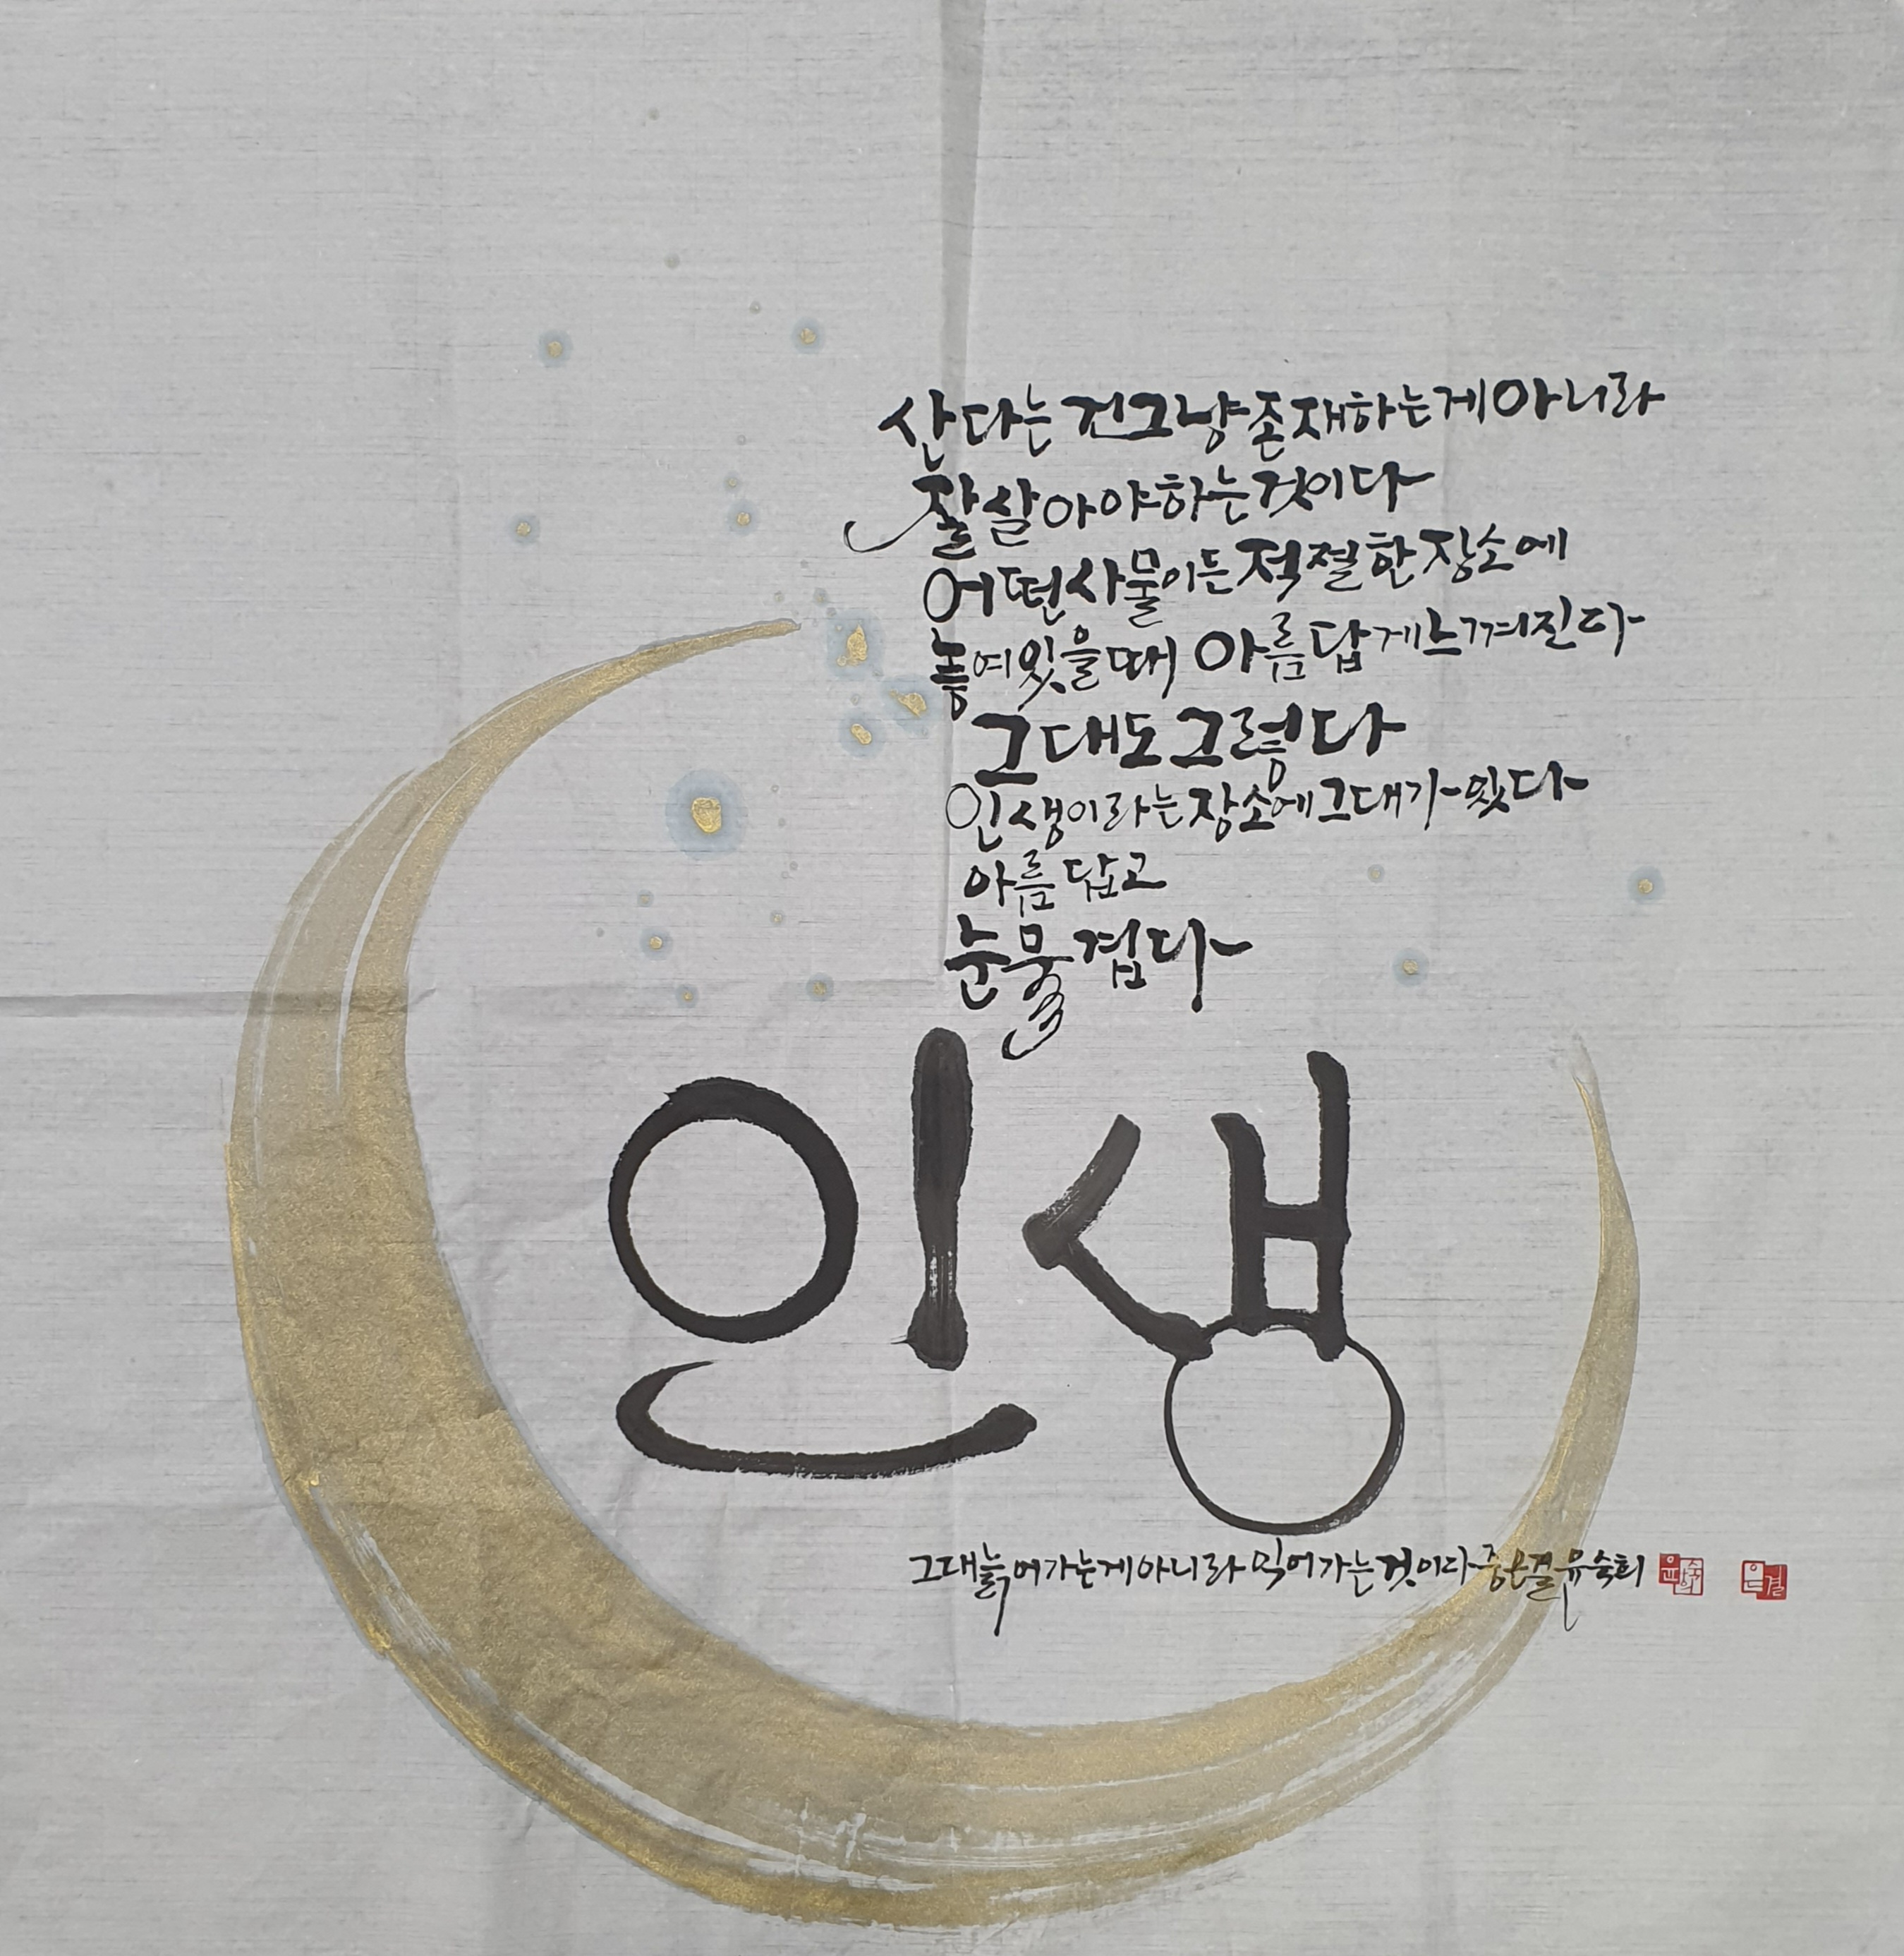 산다는 건 그냥 존재하는 게 아니라
잘 살아야 하는 것이다
어떤 사물이든 적절한 장소에
놓여 있을 때 아름답게 느껴진다
그대도 그렇다
인생이라는 장소에 그대가 있다
아름답고
눈물겹다
인생
그대 늙어가는 게 아니라 익어가는 것이다 중 은결 유숙희
은결